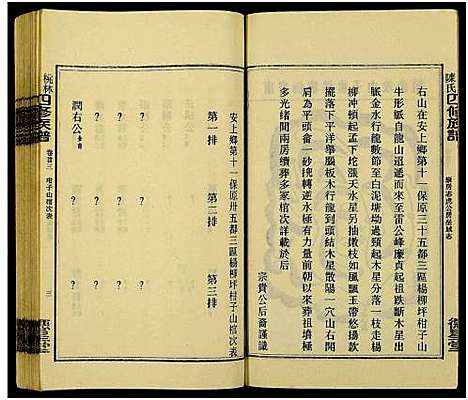 陳氏四修族譜
右山在安上鄉第十一保原三十五都三區楊柳坪柑子山
牛形脈自龍山迢遞而來至雷公峰廉貞起祖跌斷木星出
脈金水行龍數節至白泥塘坳過頸起木星分落一枝垂
柳沖傾起孟下坨張天水星另抽嫩枝如風飄玉帶悠揚款
擺落下平洋舉腦板木行龍到頭結木星散陽一穴山右開
肩為平頭畬一砂捲轉逆水極有力量前朝以來葬祖墳極
多光緒間兩房續葬多冢棺次詳載於后
宗貴公后裔謹識
安上鄉第十一保原卅五都三區楊柳坪柑子山棺次表
第一排
第二排
第三排
? ? ?
? ? ?
? ? ?
? ? ?
潤右公
四修族譜
卷首三 柑子山棺次表
三